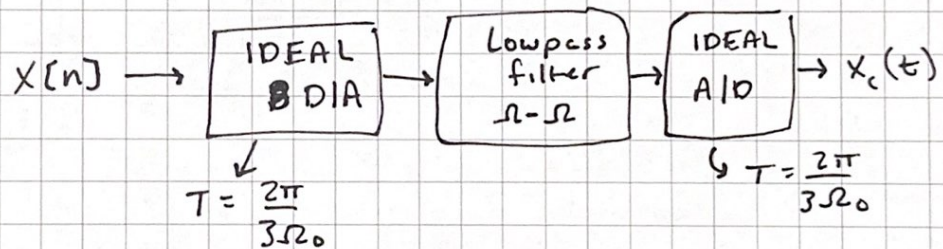 X[n] → IDEAL D/A → Lowpass filter Ω-Ω → IDEAL A/D → Xc(t)
T = 2π/3Ω₀
T = 2π/3Ω₀